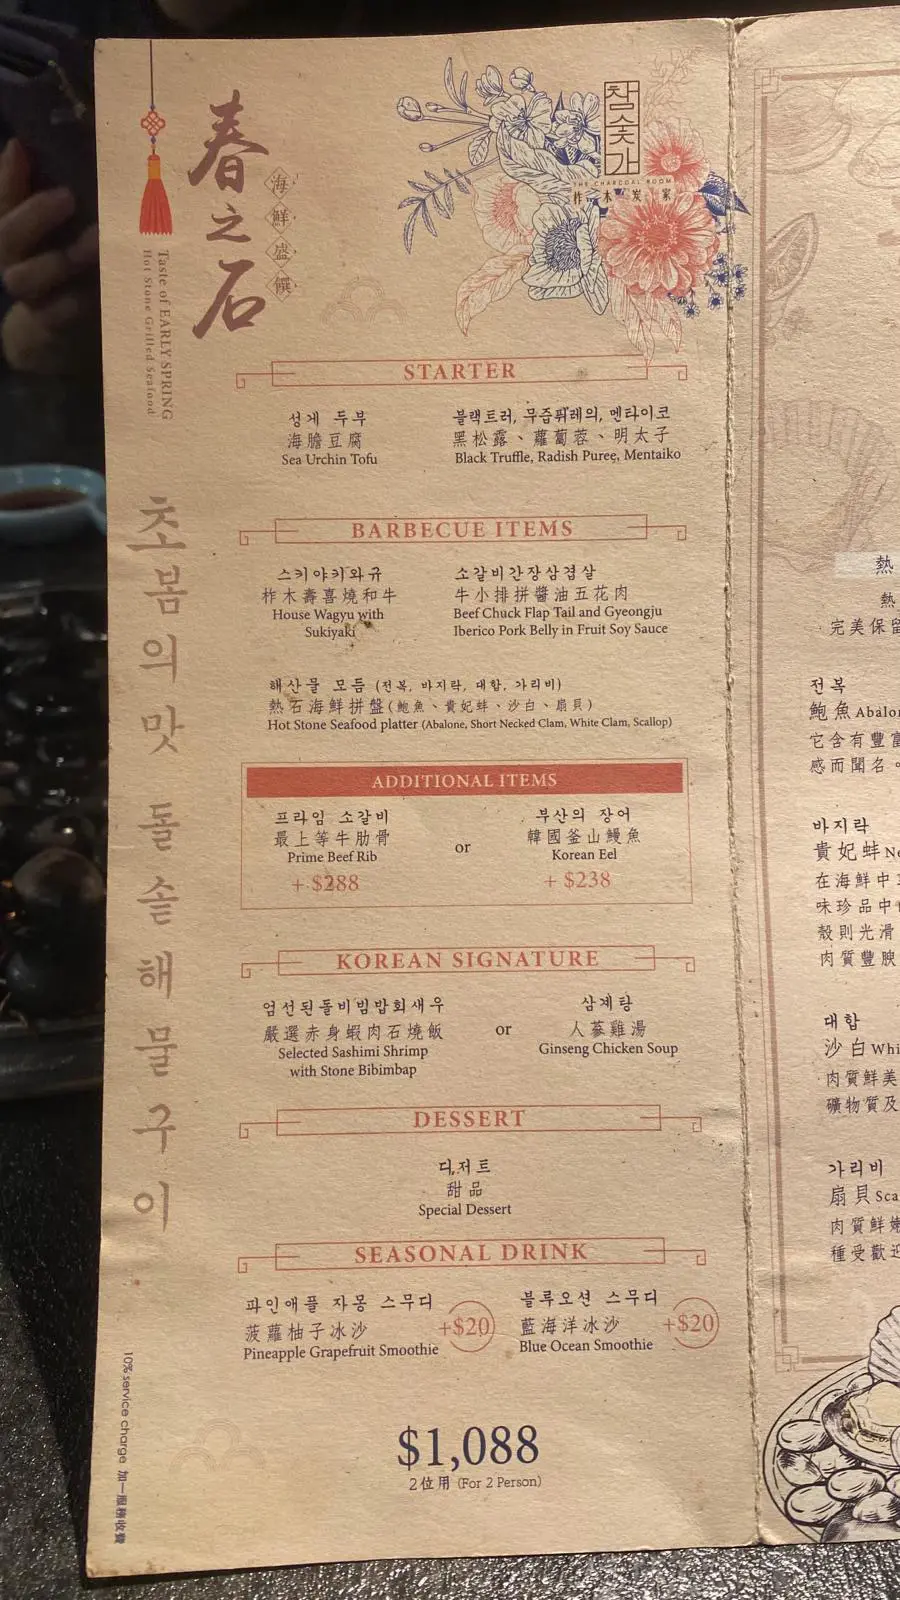 春之石
海鮮盛饌
Taste of EARLY SPRING
Hot Stone Grilled Seafood
초봄의맛 돌솥해물구이
참숯가
THE CHARCOAL ROOM
柞木炭家
STARTER
성게 두부
海膽豆腐
Sea Urchin Tofu
블랙트러, 무즙퓌레의, 멘타이코
黑松露、蘿蔔蓉、明太子
Black Truffle, Radish Puree, Mentaiko
BARBECUE ITEMS
스키야키와규
柞木壽喜燒和牛
House Wagyu with
Sukiyaki
소갈비간장삼겹살
牛小排拼醬油五花肉
Beef Chuck Flap Tail and Gyeongju
Iberico Pork Belly in Fruit Soy Sauce
해산물 모듬 (전복, 바지락, 대합, 가리비)
熱石海鮮拼盤(鮑魚、貴妃蚌、沙白、扇貝)
Hot Stone Seafood platter (Abalone, Short Necked Clam, White Clam, Scallop)
ADDITIONAL ITEMS
프라임 소갈비
最上等牛肋骨
Prime Beef Rib
+ $288
or
부산의 장어
韓國釜山鰻魚
Korean Eel
+ $238
KOREAN SIGNATURE
엄선된돌비빔밥회새우
嚴選赤身蝦肉石燒飯
Selected Sashimi Shrimp
with Stone Bibimbap
or
삼계탕
人蔘雞湯
Ginseng Chicken Soup
DESSERT
디저트
甜品
Special Dessert
SEASONAL DRINK
파인애플 자몽 스무디
菠蘿柚子冰沙
Pineapple Grapefruit Smoothie
+$20
블루오션 스무디
藍海洋冰沙
Blue Ocean Smoothie
+$20
$1,088
2位用 (For 2 Person)
10% service charge 加一服務收費
熱
熱
完美保留
전복
鮑魚Abalon
它含有豐富
感而聞名。
바지락
貴妃蚌Ne
在海鮮中
味珍品中
殼則光滑
肉質豐腴
대합
沙白Whi
肉質鮮美
礦物質及
가리비
扇貝Sca
肉質鮮嫩
種受歡迎